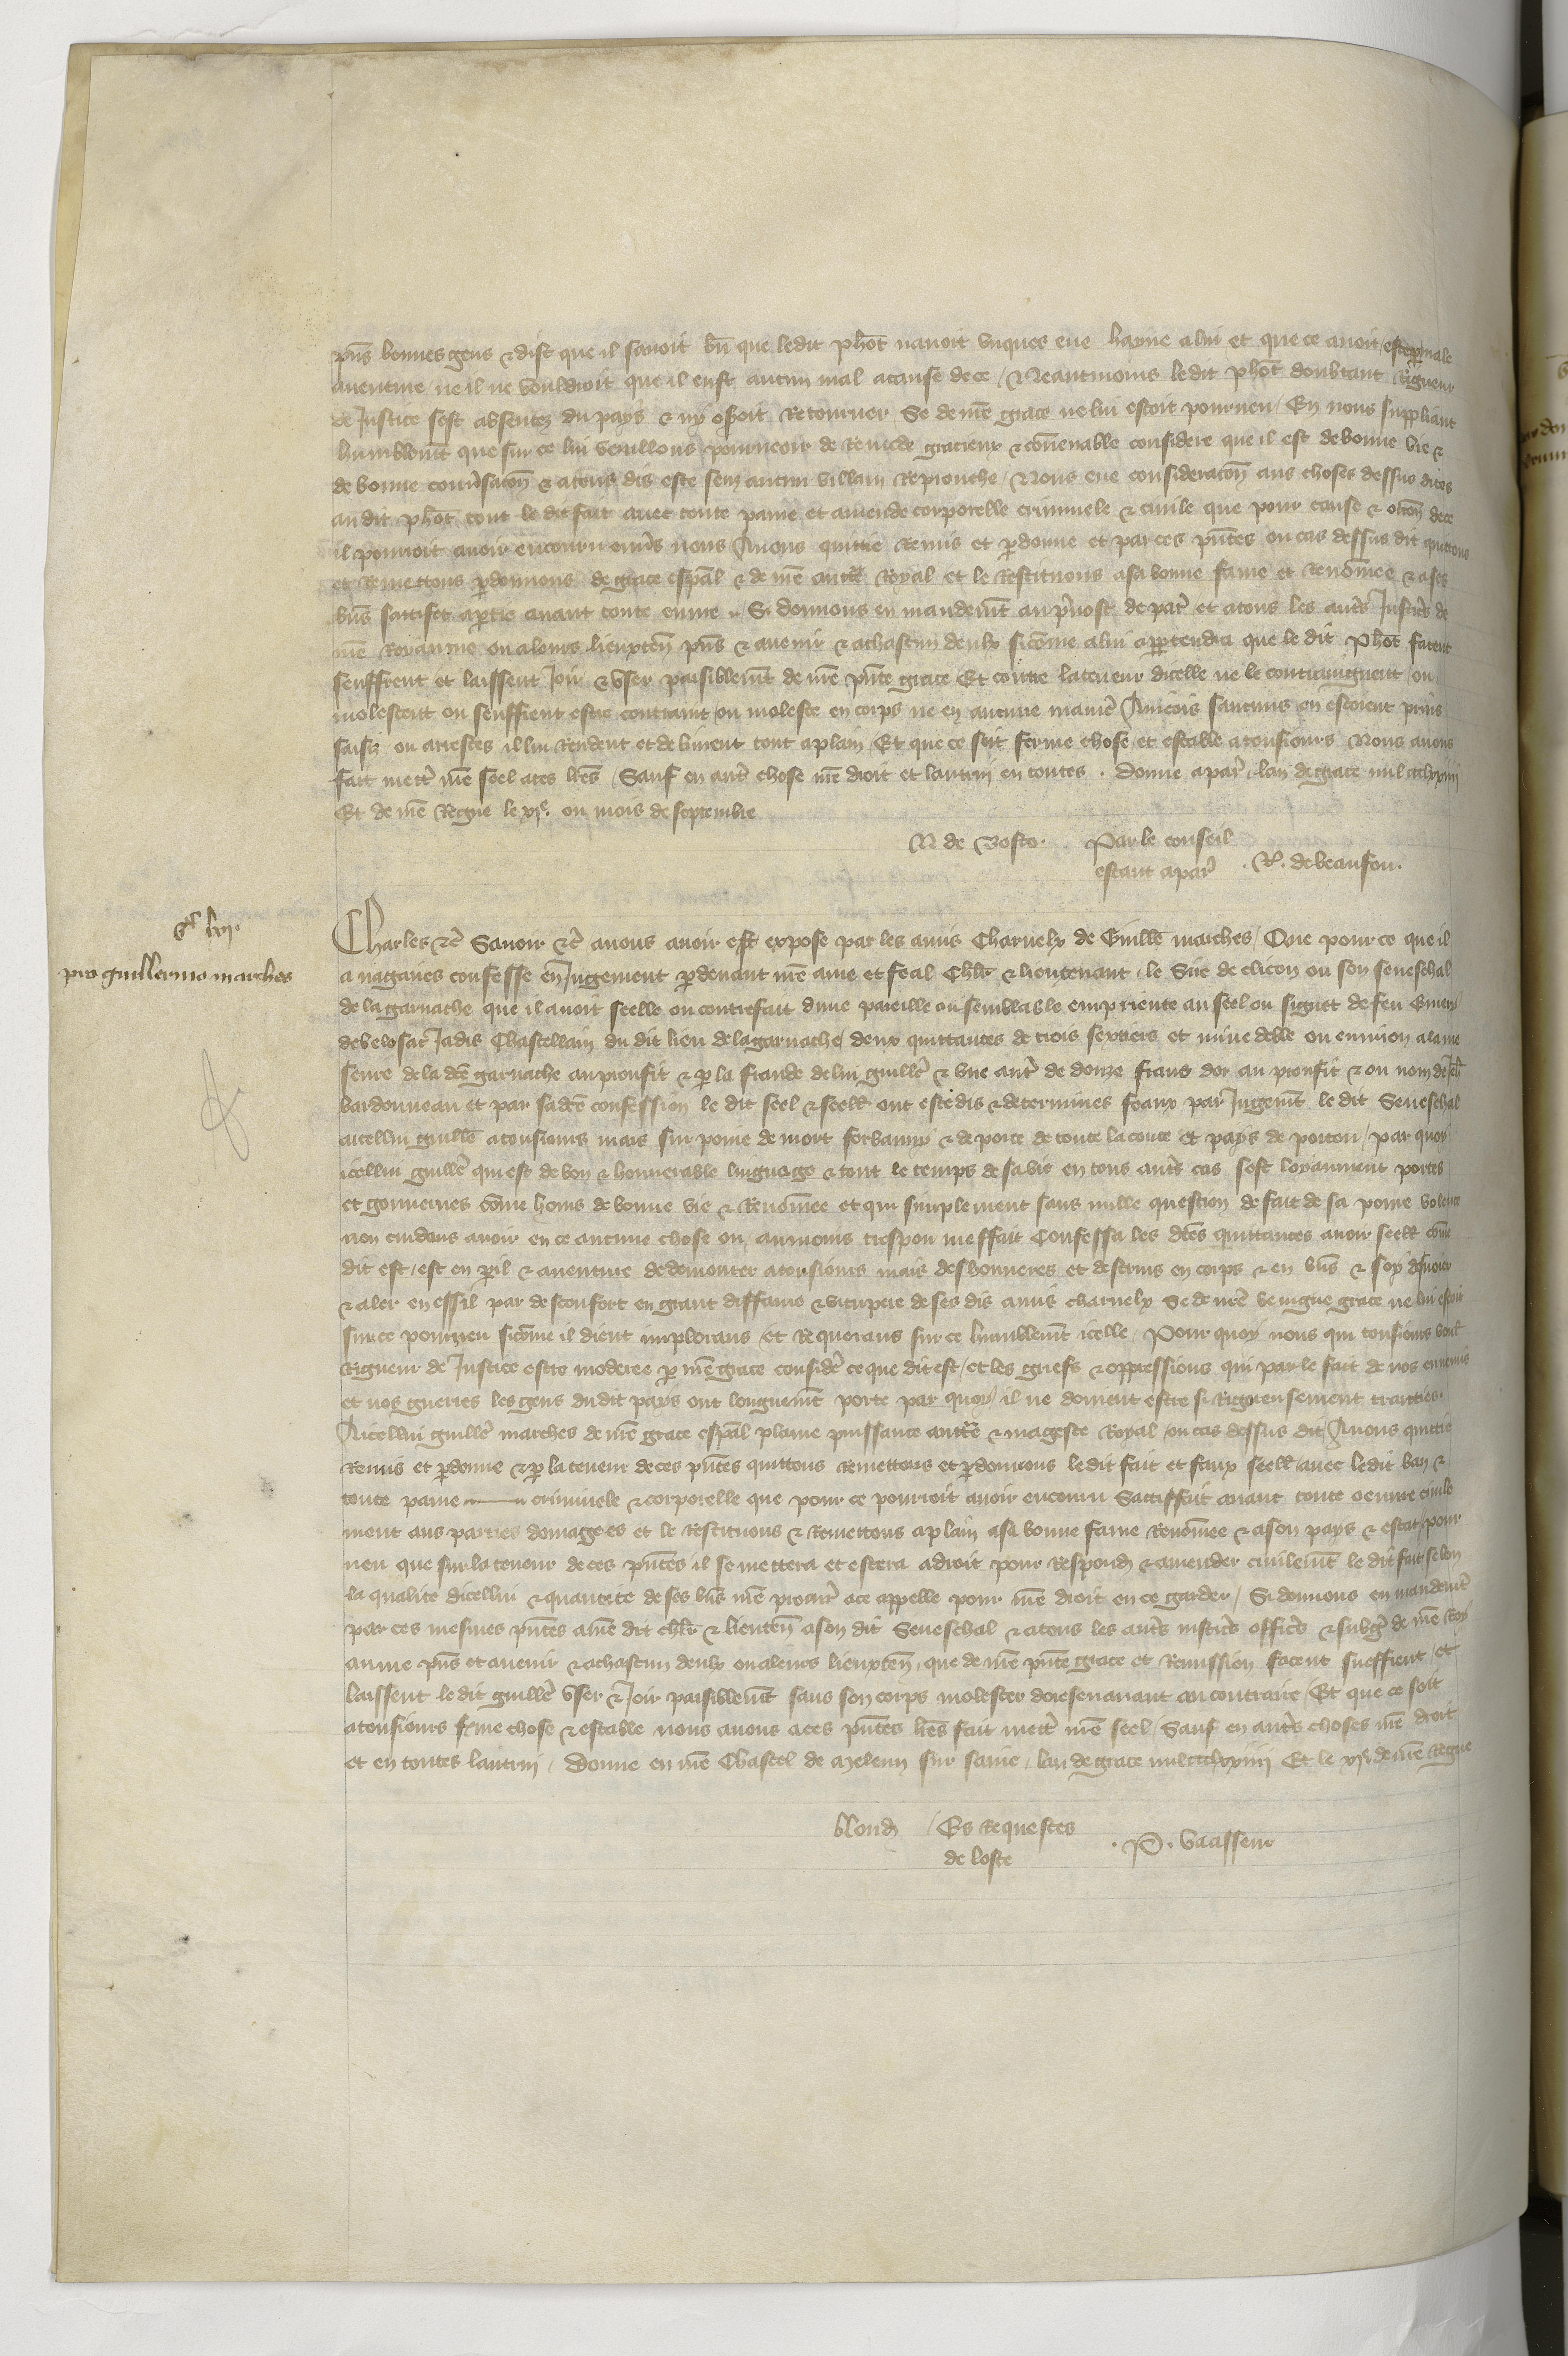 pn̄s bonnes gens & dist que il sauoit bn̄ que ledit ph̄ot nauoit vnques eue hayne a lui et que ce auoit este ꝑ male
auenture ne il ne vouldroit que il eust aucun mal a cause de ce / Neantmoins ledit ph̄ot doubtant Rigueur
de Justice sest absentez du pays & ny oseroit Retourner Se de nr̄e grace ne lui estoit pourueu / En nous suppliant
humblem̄t que sur ce lui veuillons pourueoir de Remede gracieux & cōuenable considere que il est de bonne vie &
de bonne conu̾sacōn & a tous dis este senz aucun villain Reprouche / Nous eue consideracōn aus choses dessus dites
au dit ph̄ot tout le dit fait auec toute paine et amende corporelle criminele & ciuile que pour cause & occōn de ce
il pourroit auoir encouru enu̾s nous Auons quittie Remis et ꝑdonne et par ces pn̄tes ou cas dessus dit quittons
et Remettons ꝑdonnons de grace esp̄al & de nr̄e auct̄e Royal et le Restituons a sa bonne fame et Renōmee & a ses
bn̄s satisfct̄ a ꝑtie auant toute euure .. Si donnons en mandem̄t au p̾uost de par̾ et a tous les aut̾s Justic̾s de
nr̄e Royaume ou a leurs lieuxten̄ pn̄s & auenir & a chascun deulx sicōme a lui apꝑtendra que le dit Ph̄ot facent
seuffrent et laissent Joir & vser paisiblem̄t de nr̄e pn̄te grace Et contre la teneur dicelle ne le contraingnent ou
molestent ou seuffrent estre contraint ou moleste en corps ne en aucune manie̾ Aincois saucuns en estoient prins
saisiz ou arrestes il lui Rendent et deliurent tout a plain Et que ce soit ferme chose et estable a tousiours Nous auons
fait mett̾ nr̄e seel a ces lr̄es Sauf en aut̾ chose nr̄e droit et lautrui en toutes . Donne a par̾ lan de grace mil ccclxxiiij
Et de nr̄e Regne le xjᵉ. ou mois de septembre
N de Vosto. Par le conseil
estant a par̾ . R. de beaufou.
Charles &c̄ Sauoir &c̄ a nous auoir este expose par les amis Charnelx de Guillē marches / Que pour ce que il
a nagaires confesse en Jugement ꝑdeuant nr̄e ame et feal Chl̄r & lieutenant le Sire de clicon ou son seneschal
pro guillermo marches
de la garnache que il auoit seelle ou contrefait dune pareille ou semblable empriente au seel ou signet de feu
Jadis Chastellain du dit lieu de la garnache / deux quittances de trois sextiers et mine de ble ou enuiron a la me
seure de la dc̄e garnache au proufit & ꝑ la fraude de lui guillē & vne aut̾ de douze frans dor au proufit & ou nom de
bardonneau et par sa dc̄e confession le dit seel & seelle ont este dis & determines feaux par Jugem̄t le dit Seneschal
aicellui guillē a tousiours mais sur poine de mort forbanny & de porte de toute la conte et pays de poitou / par quoy
icellui guillē qui est de bon & honnerable linguage & tout le temps de sa vie en tous aut̾s cas sest loyaument portes
et gouuernes cōme homs de bonne vie & Renōmee et qui simplement sans nulle question de fait de sa propre volente
non cuidans auoir en ce aucune chose ou aumoins trespou meffait Confessa les dc̄es quittances auoir seelle cōme
dit est / est en ꝑil & auenture de demourer a tousiours mais deshonneres et desers en corps & en bn̄s & soy
& aler en essil par desconfort en grant diffame & vitupere de ses dis amis charnelx Se de nr̄e benigne grace ne lui estoit
sur ce pourueu sicōme il dient implorans et Requerans sur ce humblem̄t icelle / Pour quoy nous qui tousiours voul
Rigueur de Justice estre moderee ꝑ nr̄e grace consider̄ ce que dit est / et les griefs & oppressions qui par le fait de nos ennemis
et nos guerres les gens du dit pays ont longuem̄t porte par quoy / il ne doiuent estre si Rigueusement traities.
Aicellui guillē marches de nr̄e grace esp̄al plaine puissance auct̄e & mageste Royal ou cas dessus dit Auons quittie
Remis et ꝑdonne & ꝑ la teneur de ces pn̄tes quittons Remettons et ꝑdonnons le dit fait et faux seelle auec le dit ban &
toute paine criminele & corporelle que pour ce pourroit auoir encouru Satisffait auant toute oeuure ciuile
ment aus parties domages et le Restituons & Remettons a plain a sa bonne fame Renōmee & a son pays & estat / pour
ueu que sur la teneur de ces pn̄tes il se mettera et estera a droit pour Respondr̄ & amender ciuilem̄t le dit fait selon
la qualite dicellui & quantite de ses bn̄s nr̄e procur̾ a ce appelle pour nr̄e droit en ce garder / Si donnons en mandem̄t
par ces mesmes pn̄tes a nr̄e dit chl̄r & lieuten̄ a son dit Seneschal & a tous les aut̾s iustic̾s offic̾s & subg̾ de nr̄e Roy
aume pn̄s et auenir & a chascun deulx ou a leurs lieuxten̄ / que de nr̄e pn̄te grace et Remission facent sueffrent et
laissent le dit guillē vser & Joir paisiblem̄t sans son corps molester doresenauant au contraire / Et que ce soit
a tousiours ferme chose & estable nous auons a ces pn̄tes lr̄es fait mett̾ nr̄e seel / Sauf en aut̾s choses nr̄e droit
et en toutes lautrui / Donne en nr̄e Chastel de meleun sur saine / lan de grace mil ccclxxiiij Et le xjᵉ de nr̄e Regne
blond̄ / Es Requestes
de lostē . P. Vaasseur